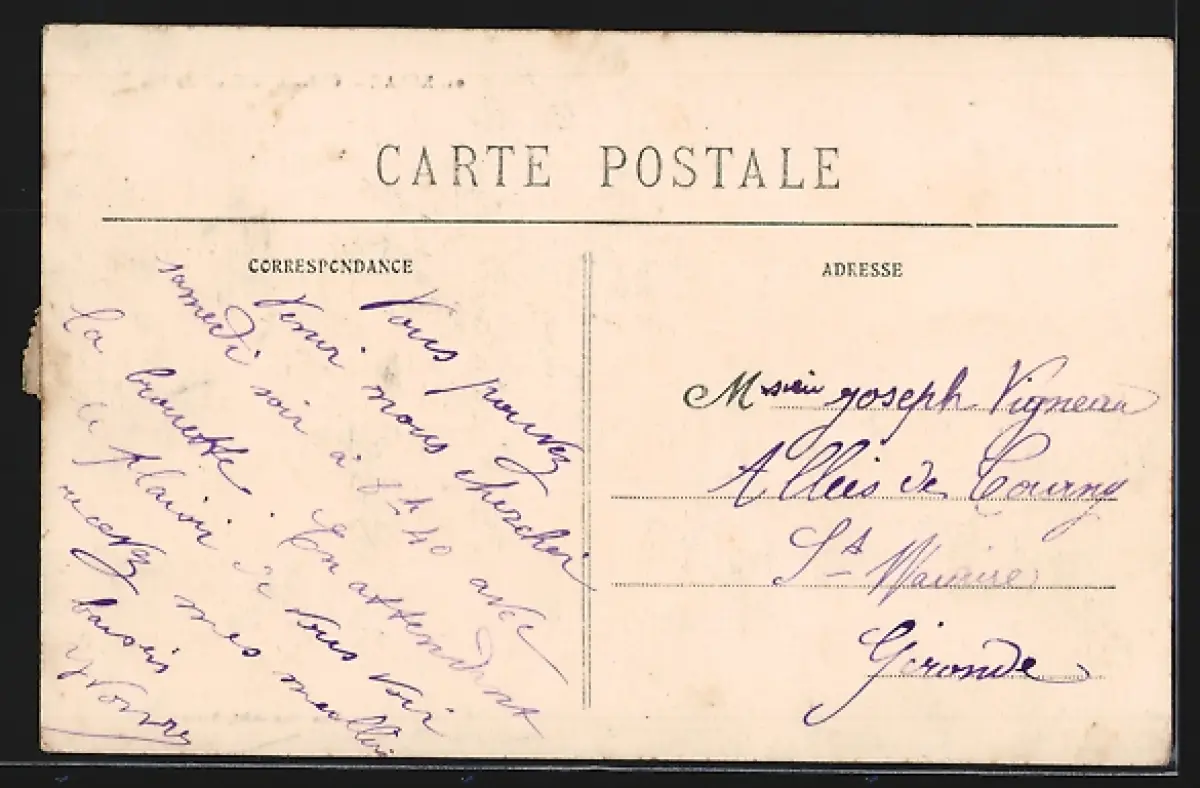 CARTE POSTALE
CORRESPONDANCE
Vous pouvez
venir nous chercher
samedi soir à 8h 40 avec
la brouette. En attendant
le plaisir de vous voir
recevez mes meilleurs
baisers
Yvonne
ADRESSE
Monsieur Joseph Vigneau
Allées de Tourny
St Macaire
Gironde